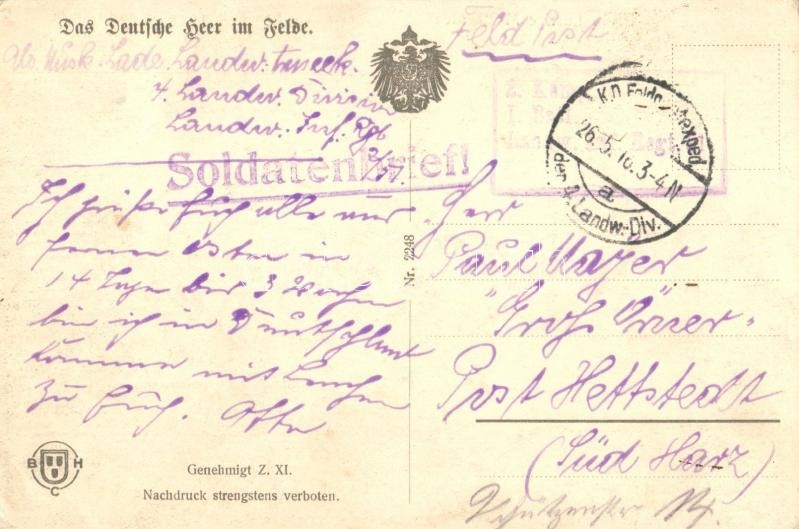 Das Deutsche Heer im Felde.
Feld Post
Landw.
4. Landw. Division
Landw. Inf. Rgt
Soldatenbrief!
K.D. Feldp. exped.
26.5.16.3-4N
a
der 4. Landw.-Div.
Ich grüße Euch alle
fernen Osten in
14 Tage bis 3 Wochen
bin ich in Deutschland
komme mit
zu Euch. Otto
Nr. 2248
Herr
Paul Mayer
"Groß Örner"
Post Hettstedt
(Süd Harz)
B H
C
Genehmigt Z. XI.
Nachdruck strengstens verboten.